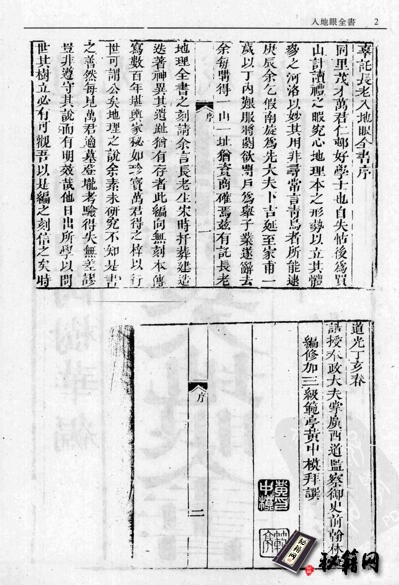 入地眼全書 2
辜託長老入地眼全書序
同里茂才萬君仁邨好學士也自失怙後爲買
山計讀禮之暇究心地理本之形勢以立其體
參之河洛以妙其用非尋常言靑烏者所能逮
庚辰余乞假南旋爲先大夫卜吉延至家甫一
歲以丁內艱服將闋欲閉戶爲子業遂辭去
余每購得一山一址猶資商確焉茲有託長老
序
一
地理全書之刻請余言長老生宋時扦葬建造
迭著神異其遺趾猶有存者此編向無刻本傳
寫數百年堪輿家秘如珍寶萬君得之梓以行
世可謂公矣地理之說余素未研究不知是書
之善然每見萬君適墓登壠考驗得失無差謬
豈非遵守其說而有明效哉他日出所學以問
世其樹立必有可觀吾以是編之刻信之矣時
道光丁亥春
誥授奉政大夫掌廣西道監察御史前翰林
編修加三級範亭黃中模拜譔
序
二
黃印
中模
秘籍网